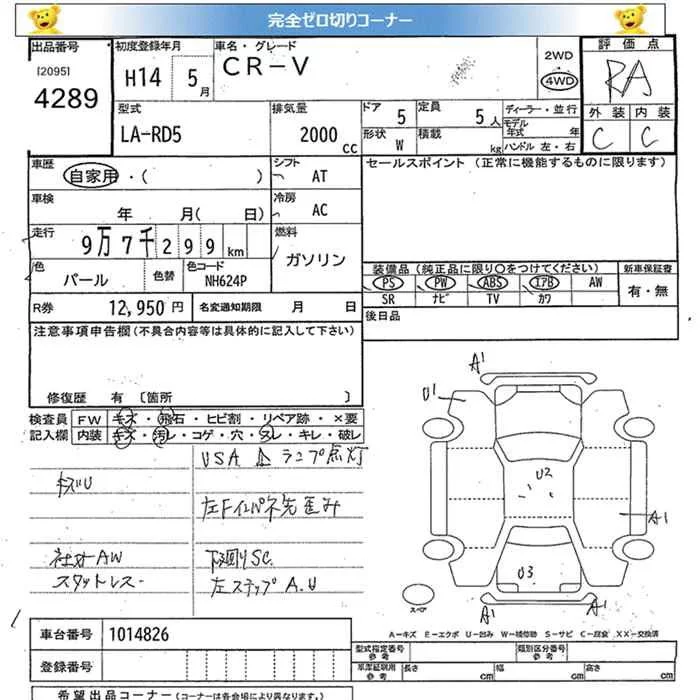 完全ゼロ切りコーナー
出品番号
[2095]
4289
初度登録年月
H14 5月
車名・グレード
CR-V
2WD
4WD
評価点
RA
外装 内装
C C
型式
LA-RD5
排気量
2000 cc
ドア 5
定員 5人
形状 W
積載 kg
ディーラー・並行
モデル年式 年
ハンドル 左・右
車歴
自家用・( )
シフト
AT
セールスポイント (正常に機能するものに限ります)
車検
年 月( 日)
冷房
AC
走行
9万7千299km
燃料
ガソリン
色
パール
色替
色コード
NH624P
装備品 (純正品に限り○をつけてください)
新車保証書
PS PW ABS エアB AW
有・無
SR ナビ TV カワ
R券 12,950円
名変通知期限 月 日
後日品
注意事項申告欄(不具合内容等は具体的に記入して下さい)
修復歴 有 〔箇所 〕
検査員 FW キズ・飛石・ヒビ割・リペア跡・×要
記入欄 内装 キズ・汚レ・コゲ・穴・スレ・キレ・破レ
USA ランプ点灯
キズU
左Fインパネ先歪み
社外AW
下廻りSC
スタットレス
左ステップA.U
A1
U1
U2
A1
U3
A1
A1
スペア
A-キズ E-エクボ U-凹み W-補修跡 S-サビ C-腐食 XX-交換済
車台番号 1014826
型式指定番号 参考
類別区分番号 参考
登録番号
車庫証明用 参考
長さ cm
幅 cm
高さ cm
希望出品コーナー (コーナーは各会場により異なります。)